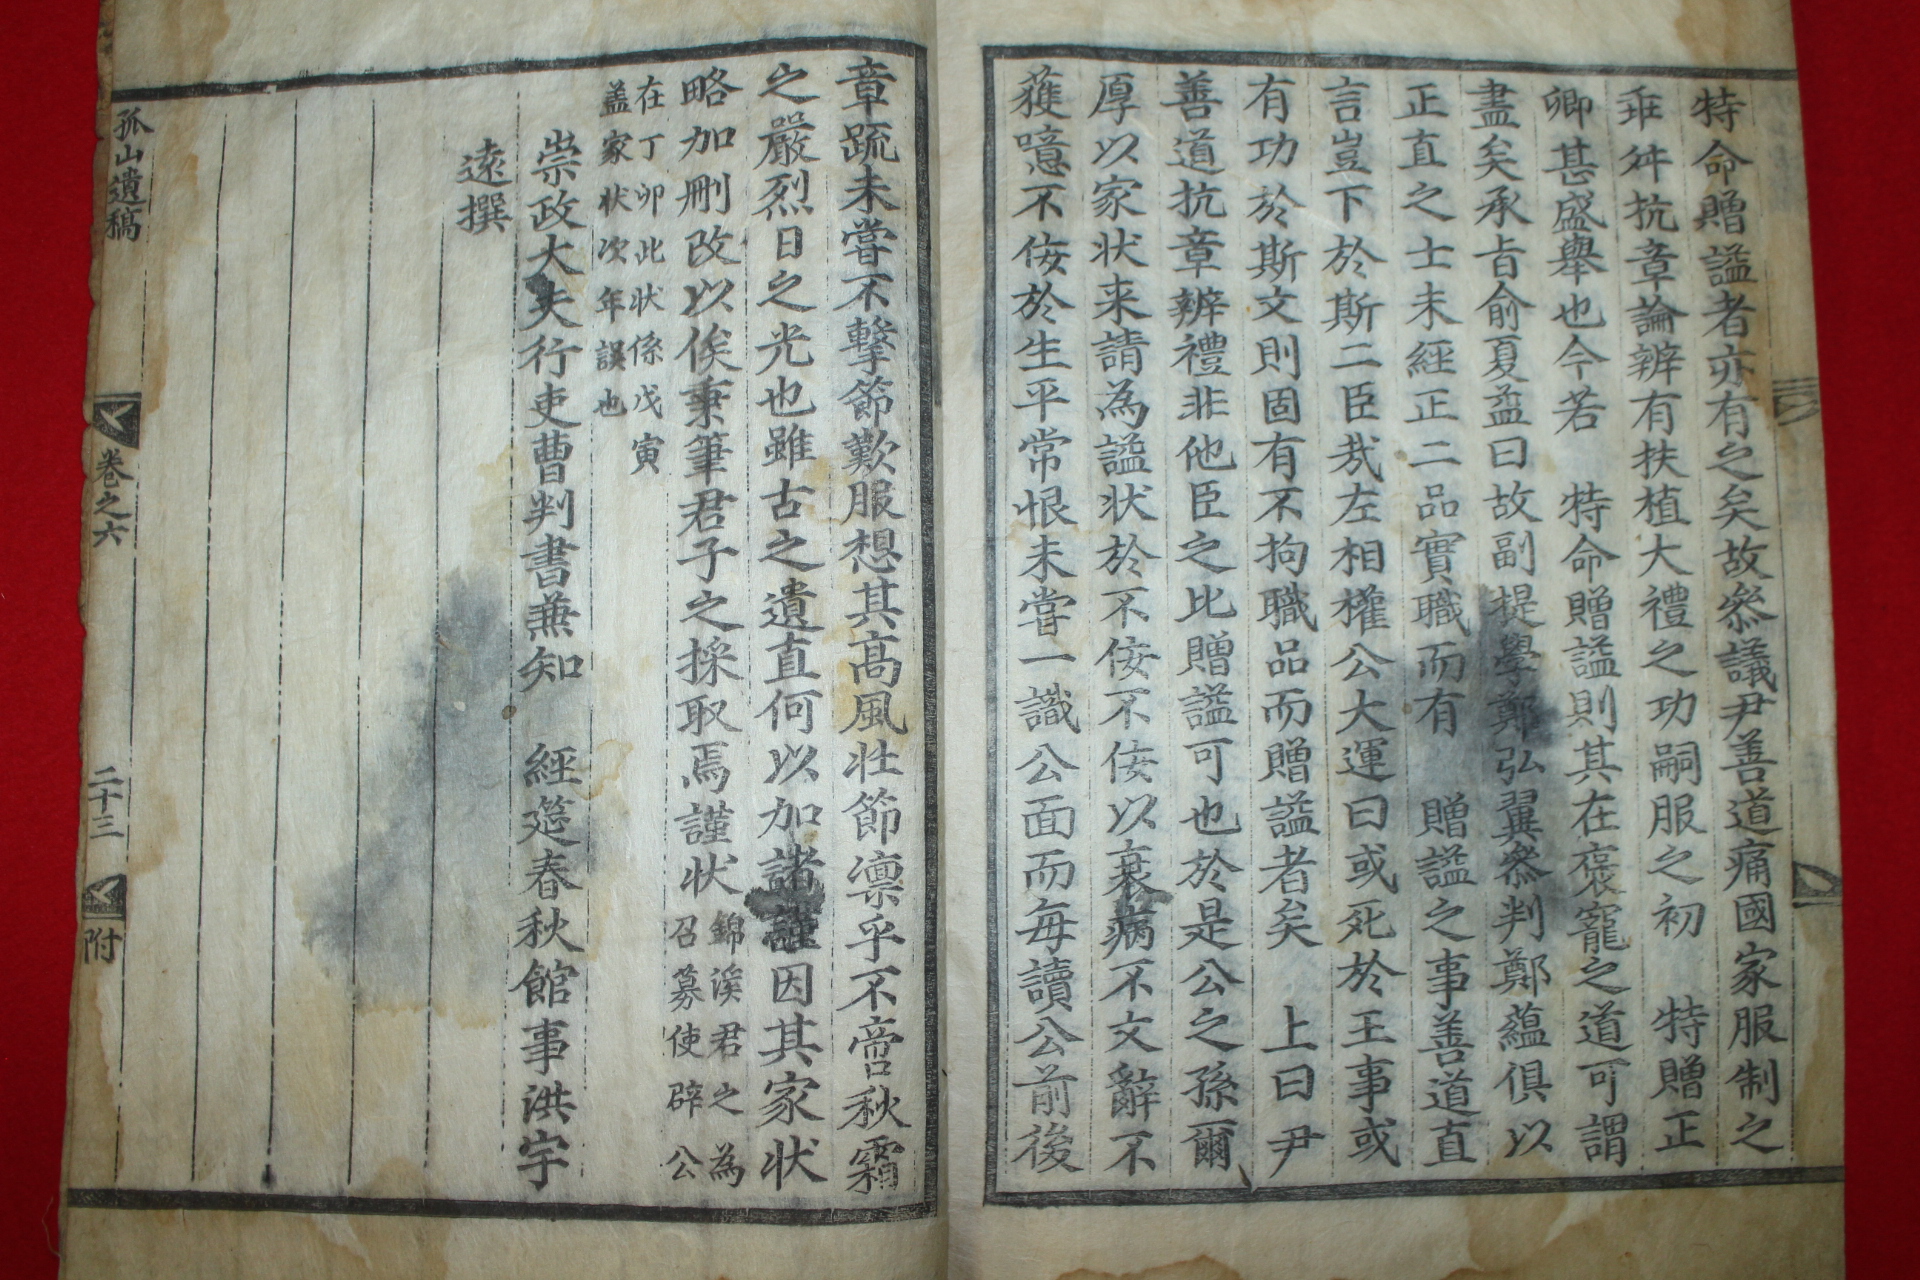 特命贈謚者亦有之矣故叅議尹善道痛國家服制之
乖舛抗章論辨有扶植大禮之功嗣服之初 特贈正
卿甚盛擧也今若 特命贈謚則其在褒寵之道可謂
盡矣承旨俞夏益曰故副提學鄭弘翼叅判鄭蘊俱以
正直之士未經正二品實職而有 贈謚之事善道直
言豈下於斯二臣㦲左相權公大運曰或死於王事或
有功於斯文則固有不拘職品而贈謚者矣 上曰尹
善道抗章辨禮非他臣之比贈謚可也於是公之孫爾
厚以家状来請為謚状於不佞不佞以衰病不文辭不
獲噫不佞於生平常恨未嘗一識公面而每讀公前後
章疏未嘗不擊節歎服想其高風壮節凛乎不啻秋霜
之嚴烈日之光也雖古之遺直何以加諸謹因其家状
略加刪改以俟秉筆君子之採取焉謹状
錦溪君之為
召募使辟公
在丁卯此状係戊寅
盖家状次年誤也
崇政大夫行吏曹判書兼知 經筵春秋館事洪宇
遠撰
孤山遺稿
卷之六
二十三
附